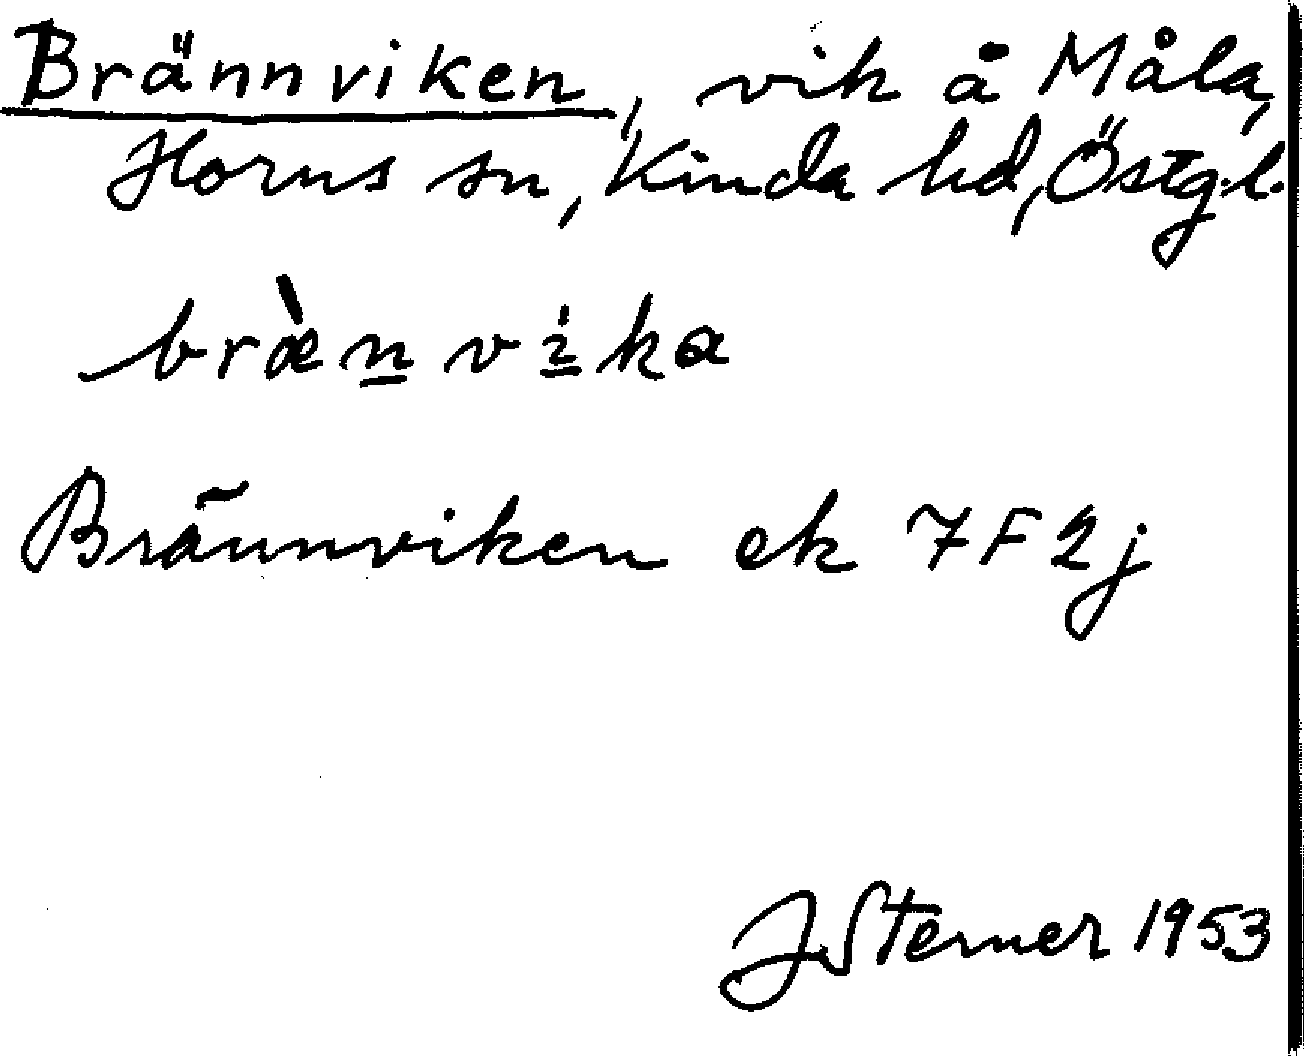 Brännviken, vik å Måla,
Horns sn, Kinda hd, Östg.l.
bræ̀n̲vi̲ka
Brännviken ek 7F2j
J Sterner 1953